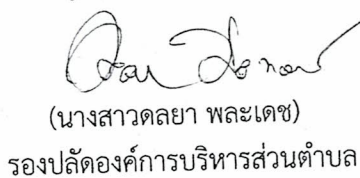 (นางสาวดลยา พละเดช)
รองปลัดองค์การบริหารส่วนตำบล